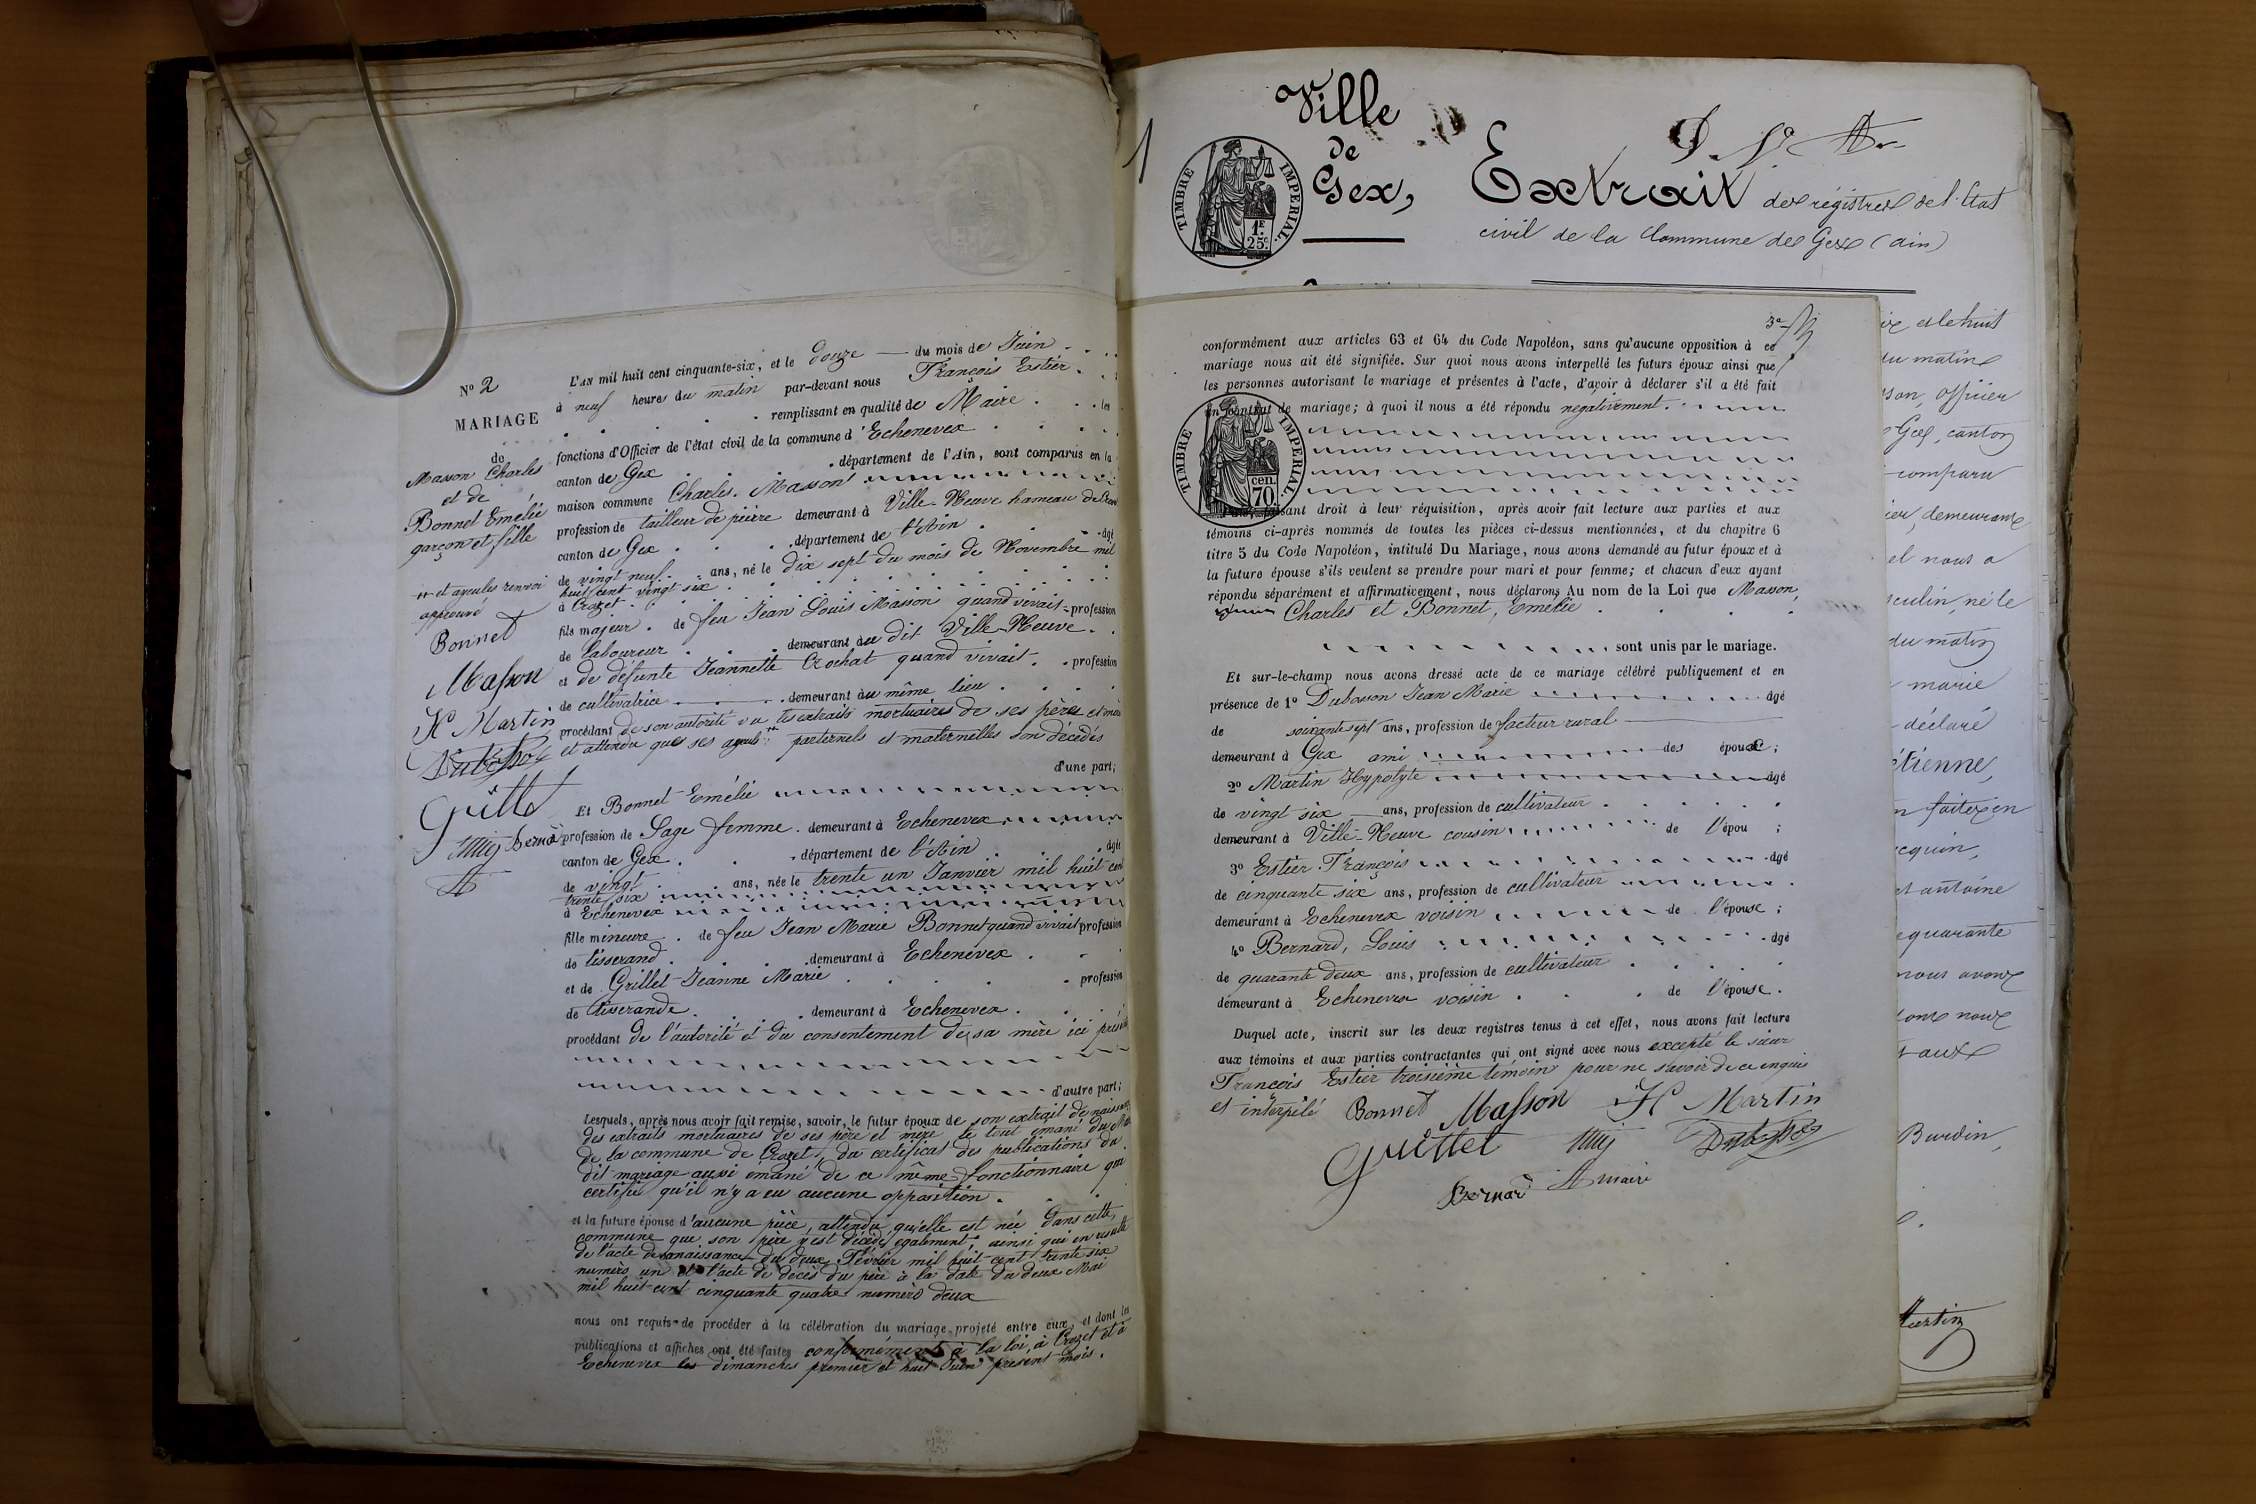 N° 2
MARIAGE
de
Masson Charles
et de
Bonnet Emélie
garçon et fille
et ayeules renvoi
approuvé
Bonnet
Masson
H Martin
Bernard
L'AN mil huit cent cinquante-six, et le douze du mois de Juin
à neuf heures du matin par-devant nous François Estier
remplissant en qualité de Maire les
fonctions d'Officier de l'état civil de la commune d'Echenevex
canton de Gex département de l'Ain, sont comparus en la
maison commune Charles Masson
profession de tailleur de pierre demeurant à Ville-Neuve hameau de
canton de Gex département de l'Ain âgé
de vingt neuf ans, né le dix sept du mois de Novembre mil
huit cent vingt six
à Crozet
fils majeur de feu Jean Louis Masson quand vivait profession
de laboureur demeurant au dit Ville-Neuve
et de défunte Jeannette Crochat quand vivait profession
de cultivatrice demeurant au même lieu
procédant de son autorité vu les extraits mortuaires de ses pères et mère
et attendu que ses ayeuls paternels et maternelles son décédés
d'une part;
Et Bonnet Emélie
profession de Sage femme demeurant à Echenevex
canton de Gex département de l'Ain âgée
de vingt ans, née le trente un Janvier mil huit cent
trente six
à Echenevex
fille mineure de feu Jean Marie Bonnet quand vivait profession
de tisserand demeurant à Echenevex
et de Grillet Jeanne Marie profession
de tisserande demeurant à Echenevex
procédant de l'autorité et du consentement de sa mère ici présente
d'autre part;
Lesquels, après nous avoir fait remise, savoir, le futur époux de son extrait de naissance
des extraits mortuaires de ses père et mère le tout émané du Maire
de la commune de Crozet, du certificat des publications du
dit mariage aussi émané de ce même fonctionnaire qui
certifie qu'il n'y a eu aucune opposition.
et la future épouse d'aucune pièce, attendu qu'elle est née dans cette
commune que son père y est décédé également, ainsi qui en resulte
de l'acte de naissance du deux Février mil huit cent trente six
numéro un et l'acte de décès du père à la date du deux Mai
mil huit cent cinquante quatre numéro deux
nous ont requis de procéder à la célébration du mariage projeté entre eux, et dont les
publications et affiches ont été faites conformément à la loi, à Crozet et à
Echenevex les dimanches premier et huit Juin present mois.
Ville
de
Gex,
TIMBRE IMPERIAL.
1F.
25c.
Extrait des régistres de l'Etat
civil de la Commune de Gex (ain)
conformément aux articles 63 et 64 du Code Napoléon, sans qu'aucune opposition à ce
mariage nous ait été signifiée. Sur quoi nous avons interpellé les futurs époux ainsi que
les personnes autorisant le mariage et présentes à l'acte, d'avoir à déclarer s'il a été fait
un contrat de mariage; à quoi il nous a été répondu negativement.
TIMBRE IMPERIAL.
cen.
70.
droit à leur réquisition, après avoir fait lecture aux parties et aux
témoins ci-après nommés de toutes les pièces ci-dessus mentionnées, et du chapitre 6
titre 5 du Code Napoléon, intitulé Du Mariage, nous avons demandé au futur époux et à
la future épouse s'ils veulent se prendre pour mari et pour femme; et chacun d'eux ayant
répondu séparément et affirmativement, nous déclarons Au nom de la Loi que Masson,
Charles et Bonnet, Emélie
sont unis par le mariage.
Et sur-le-champ nous avons dressé acte de ce mariage célébré publiquement et en
présence de 1° Dubosson Jean Marie âgé
de soixante sept ans, profession de facteur rural
demeurant à Gex ami des époux;
2° Martin Hypolyte âgé
de vingt six ans, profession de cultivateur
demeurant à Ville-Neuve cousin de l'épou ;
3° Estier François âgé
de cinquante six ans, profession de cultivateur
demeurant à Echenevex voisin de l'épouse;
4° Bernard, Louis âgé
de quarante deux ans, profession de cultivateur
demeurant à Echenevex voisin de l'épouse.
Duquel acte, inscrit sur les deux registres tenus à cet effet, nous avons fait lecture
aux témoins et aux parties contractantes qui ont signé avec nous excepté le sieur
François Estier troisième témoin pour ne savoir de ce enquis
et interpélé Bonnet Masson H Martin
Grillet
Bernard maire
et le huit
du matin
officier
Gex, canton
comparu
demeurant
et nous a
né le
du matin
marie
déclaré
étienne,
antoine
quarante
nous avons
nous
aux
Burdin,
Martin